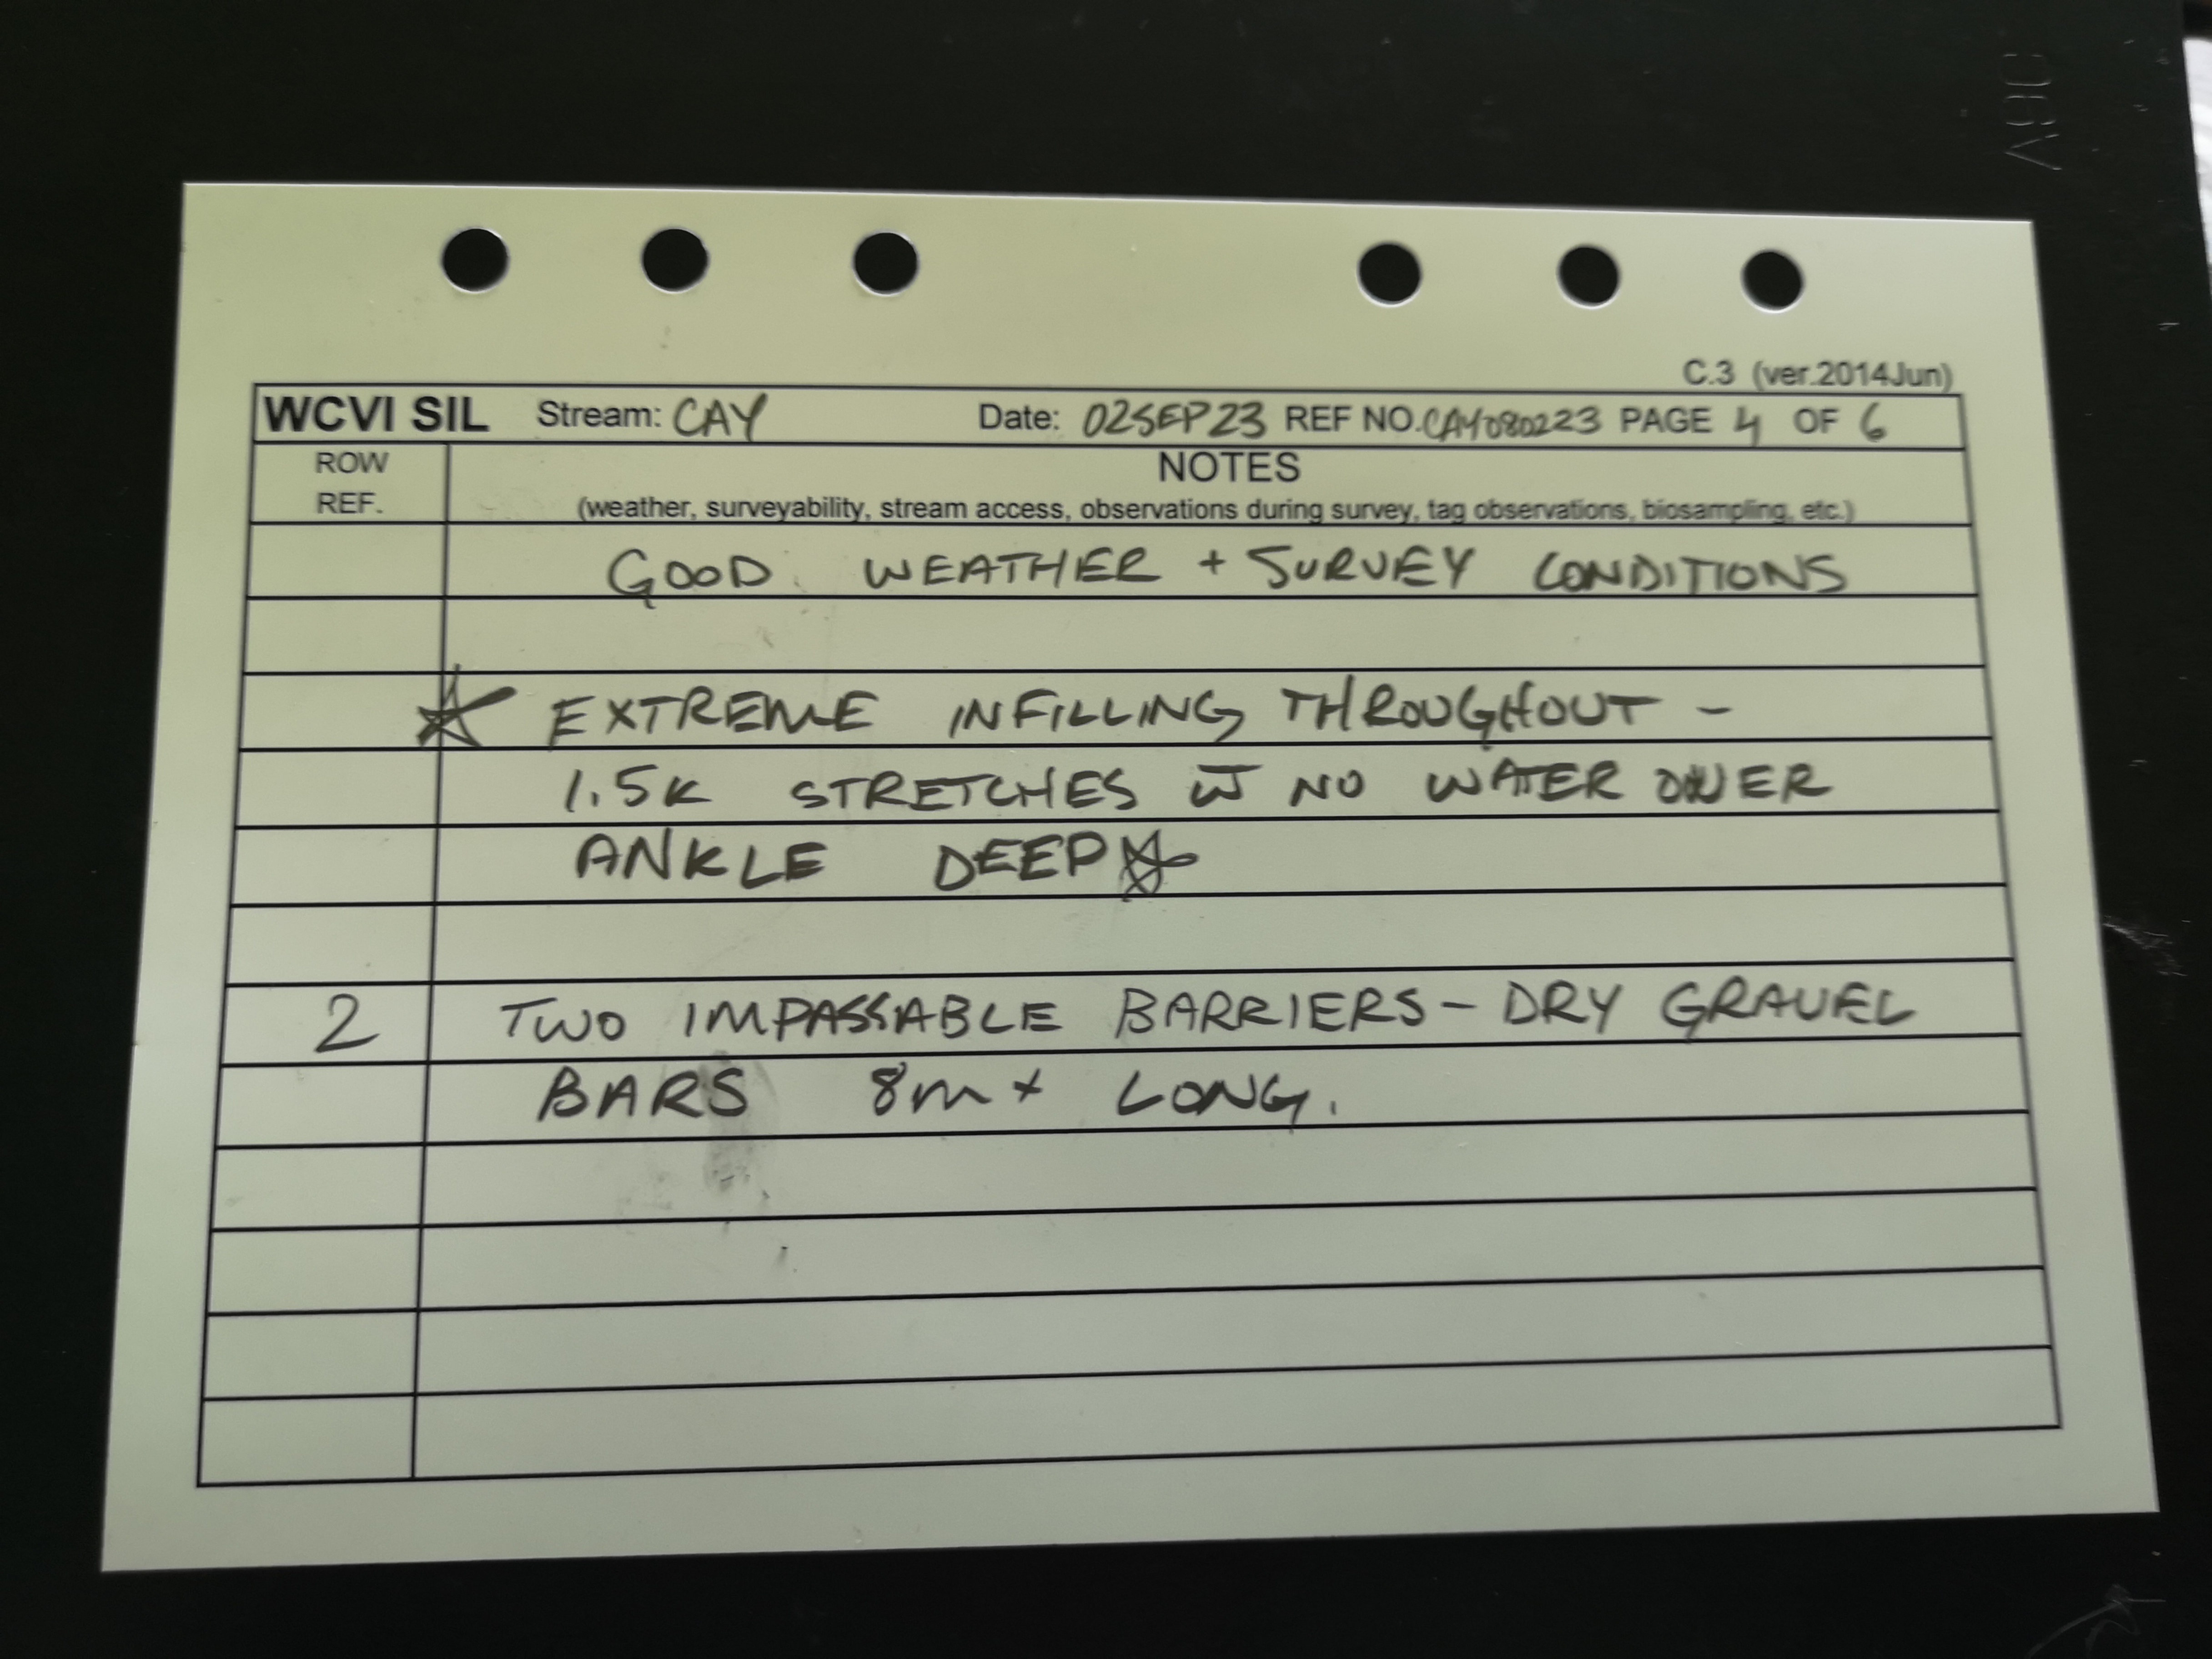 C.3 (ver.2014Jun)
WCVI SIL Stream: CAY Date: 02SEP23 REF NO. CAY080223 PAGE 4 OF 6
ROW REF. NOTES
(weather, surveyability, stream access, observations during survey, tag observations, biosampling, etc.)
GOOD WEATHER + SURVEY CONDITIONS
☆ EXTREME INFILLING THROUGHOUT -
1.5K STRETCHES w̅ NO WATER OVER
ANKLE DEEP ☆
2 TWO IMPASSABLE BARRIERS - DRY GRAVEL
BARS 8m+ LONG.